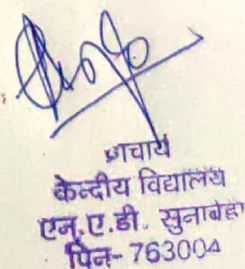 प्राचार्य
केन्द्रीय विद्यालय
एन.ए.डी. सुनाबेड़ा
पिन- 763004